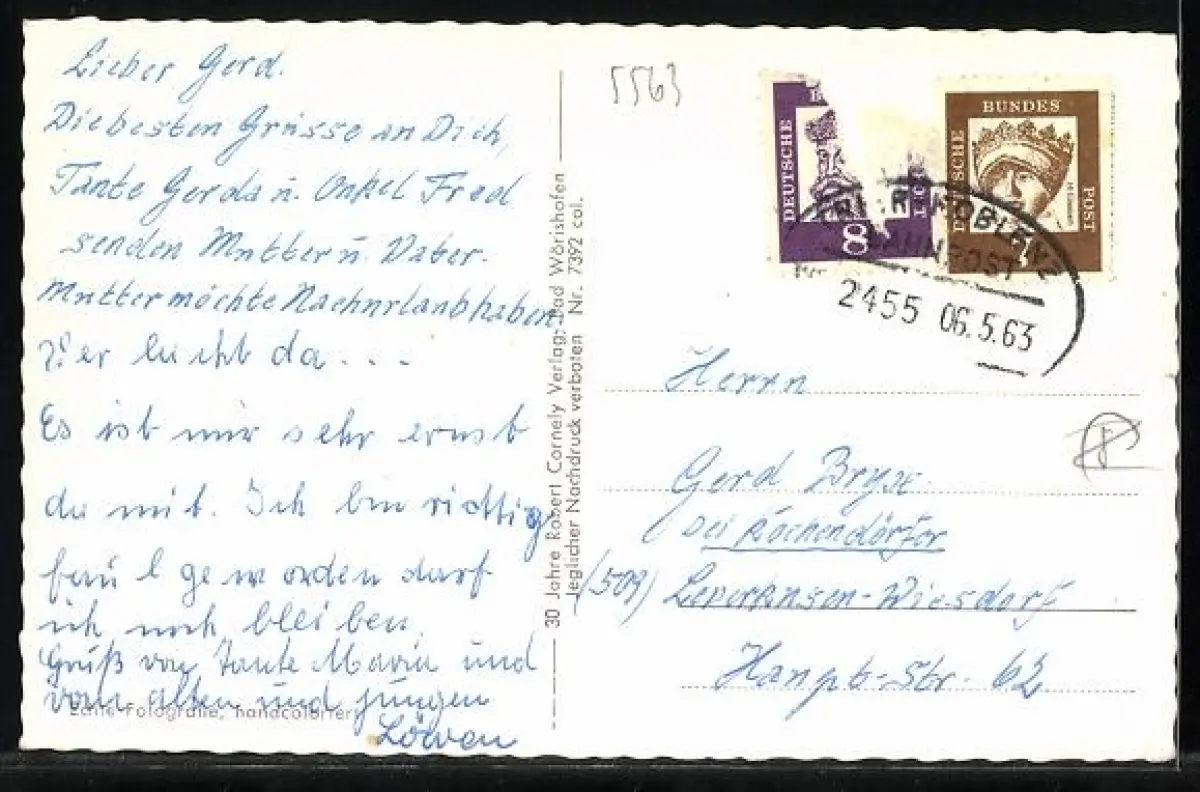 Lieber Gerd.
Die besten Grüsse an Dich,
Tante Gerda u. Onkel Fred
senden Mutter u. Vater.
Mutter möchte Nachurlaub haben
leicht da . . .
Es ist mir sehr ernst
da mit. Ich bin richtig
faul geworden darf
ich noch bleiben.
Gruß von Tante Maria und
vom alten und jungen
Löwen
Echte Fotografie, handcoloriert
30 Jahre Robert Cornely Verlag, Bad Wörishofen
Jeglicher Nachdruck verboten Nr. 7392 col.
5563
DEUTSCHE
8
BUNDES
DEUTSCHE
POST
7
KOBLENZ
BAHNPOST
2455 06.5.63
Herrn
Gerd
bei Kochendörfer
(509) Leverkusen-Wiesdorf
Haupt-Str. 62